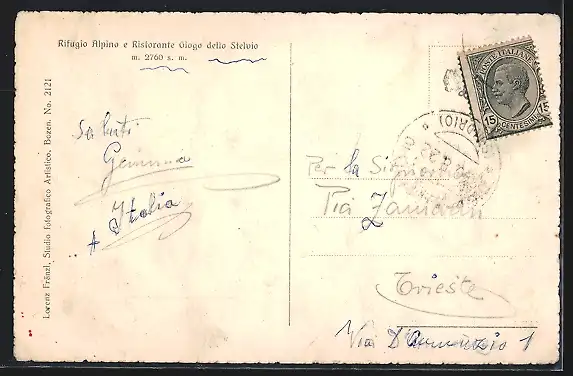 Rifugio Alpino e Ristorante Giogo dello Stelvio
m. 2760 s. m.
Lorenz Fränzl, Studio Fotografico Artistico, Bozen. No. 2121
POSTE ITALIANE
15 CENTESIMI 15
Saluti
Gemma
Italia
Per la Signora
Pia
Trieste
Via D'Annunzio 1